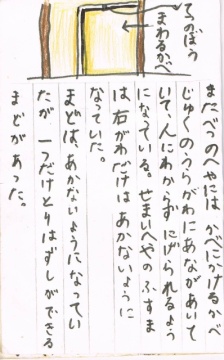 てつのぼう
まわるかべ
またべつのへやには、かべに
じくのうらがわにあながあいて
いて、人にわからずにげられるよう
になっている。せまいへやのふすま
は、右がわだけはあかないように
なっていた。
まどは、あかないようになってい
たが、一つだけとりはずしができる
まどがあった。